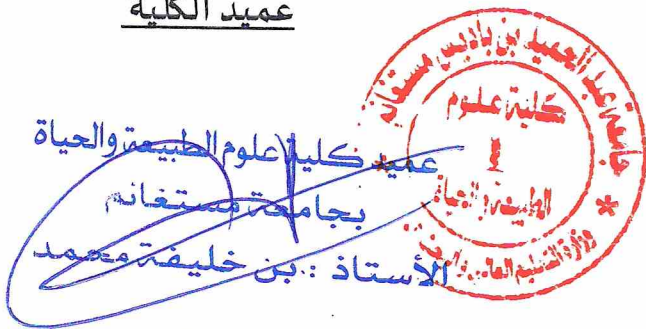 عميد الكلية
عميد كلية علوم الطبيعة والحياة
بجامعة مستغانم
الأستاذ : بن خليفة محمد
جامعة عبد الحميد بن باديس مستغانم
كلية علوم
الطبيعة و الحياة
وزارة التعليم العالي و البحث